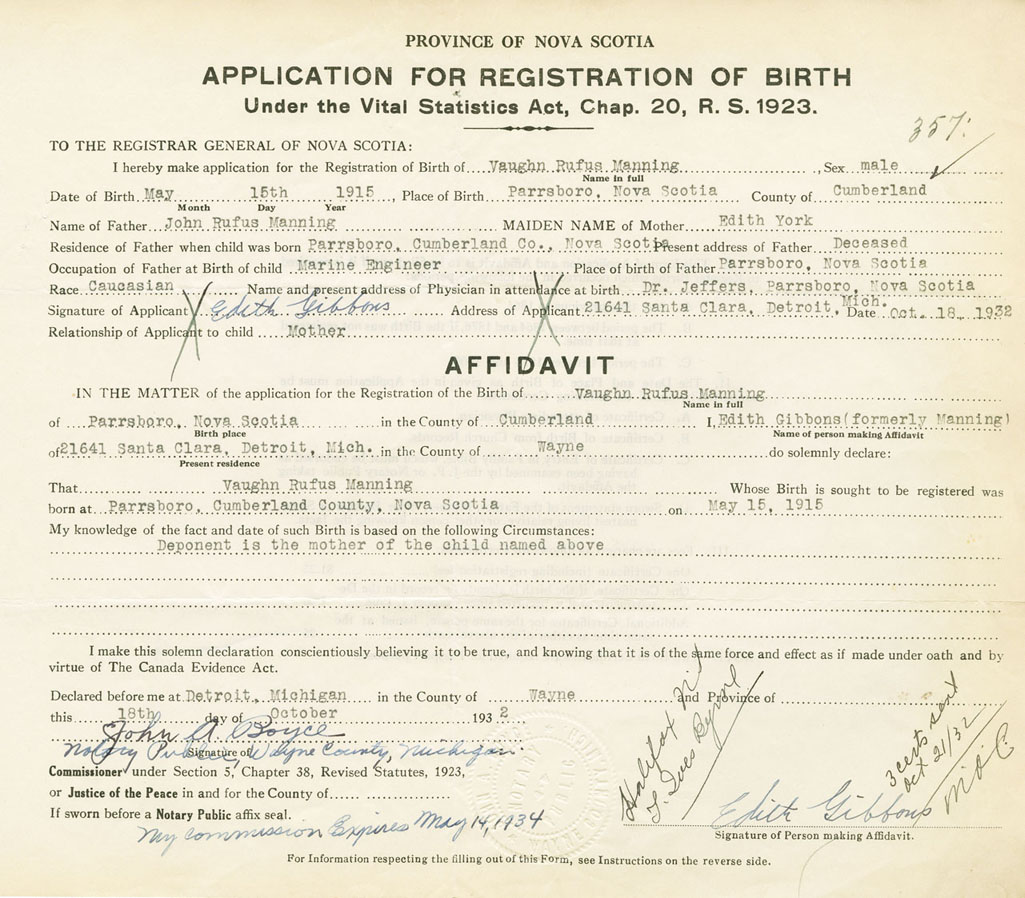 PROVINCE OF NOVA SCOTIA
APPLICATION FOR REGISTRATION OF BIRTH
Under the Vital Statistics Act, Chap. 20, R. S. 1923.
357:
TO THE REGISTRAR GENERAL OF NOVA SCOTIA:
I hereby make application for the Registration of Birth of Vaughn Rufus Manning, Sex male
Name in full
Date of Birth May 15th 1915, Place of Birth Parrsboro, Nova Scotia County of Cumberland
Month Day Year
Name of Father John Rufus Manning MAIDEN NAME of Mother Edith York
Residence of Father when child was born Parrsboro, Cumberland Co., Nova Scotia Present address of Father Deceased
Occupation of Father at Birth of child Marine Engineer Place of birth of Father Parrsboro, Nova Scotia
Race Caucasian Name and present address of Physician in attendance at birth Dr. Jeffers, Parrsboro, Nova Scotia
Signature of Applicant Edith Gibbons Address of Applicant 21641 Santa Clara, Detroit, Mich. Date Oct. 18, 1932
Relationship of Applicant to child Mother
AFFIDAVIT
IN THE MATTER of the application for Registration of the Birth of Vaughn Rufus Manning
Name in full
of Parrsboro, Nova Scotia in the County of Cumberland I, Edith Gibbons (formerly Manning)
Birth place Name of person making Affidavit
of 21641 Santa Clara, Detroit, Mich. in the County of Wayne do solemnly declare:
Present residence
That Vaughn Rufus Manning Whose Birth is sought to be registered was
born at Parrsboro, Cumberland County, Nova Scotia on May 15, 1915
My knowledge of the fact and date of such Birth is based on the following Circumstances:
Deponent is the mother of the child named above
I make this solemn declaration conscientiously believing it to be true, and knowing that it is of the same force and effect as if made under oath and by
virtue of The Canada Evidence Act.
Declared before me at Detroit, Michigan in the County of Wayne and Province of
this 18th day of October 1932
John A Boyce
Notary Public, Wayne County, Michigan.
Signature of
Commissioner under Section 5, Chapter 38, Revised Statutes, 1923,
or Justice of the Peace in and for the County of
If sworn before a Notary Public affix seal.
My Commission Expires May 14, 1934
Halifax Nil
3 certs sent
Oct 21/32
Edith Gibbons
Signature of Person making Affidavit.
For Information respecting the filling out of this Form, see Instructions on the reverse side.